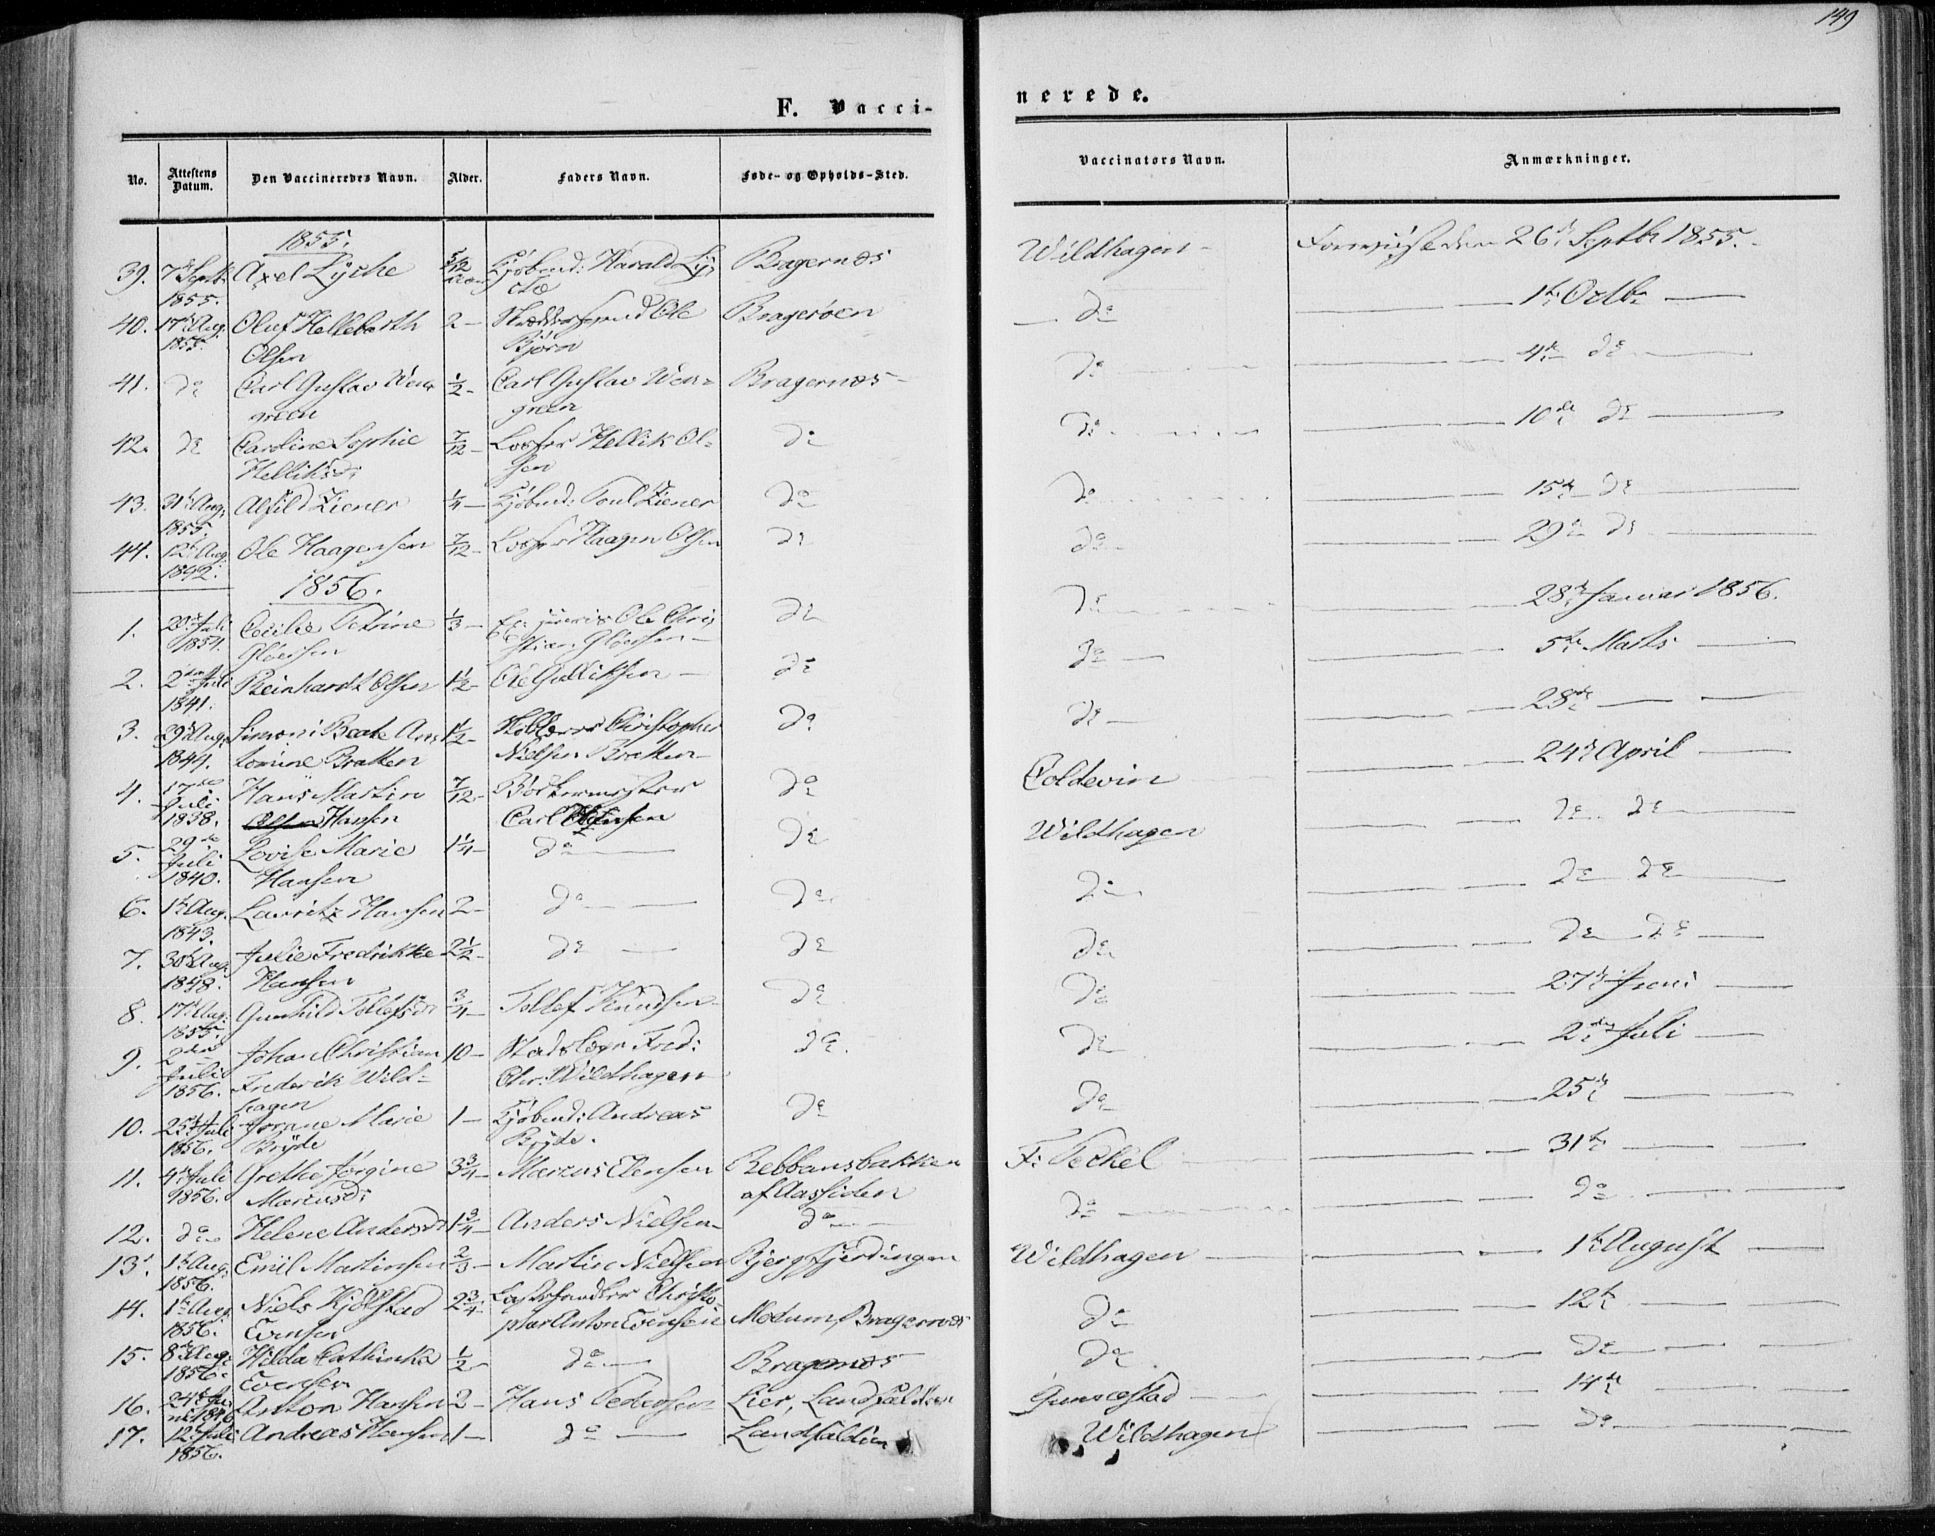 149
F. Vacci-
nerede.
No.
Attestens Datum.
Den Vaccineredes Navn.
Alder.
Faders Navn.
Føde- og Opholds-Sted.
Vaccinators Navn.
Anmærkninger.
1855.
39. 7de Septbr Axel Lyche 5/12 Kjøbmd: Harald Ly- Bragernæs Wildhagen - 26de Septbr 1855.
1855. che
40. 17de Aug. Oluf Hellebarth 2 - Ole Bragerøen do 1ste Octbr
1855. Olsen Bjørn
41. do Carl Gustav Wen- 1/2 - Carl Gustav Wen- Bragernæs - do 4de do
green green
42. do Caroline Sophie 7/12 - Losser Hellik Ol- do do 10de do
Helliksdr sen
43. 31te Aug. Alfild Ziener 1/4 - Kjøbmd: Poul Ziener do do 15de do
1855.
44. 12te Aug. Ole Haagensen 7/12 - Losser Haagen Olsen do do 29de do
1842.
1856.
1. 20de Juli Cecilie Petrine 1/3 - Ex: juris Ole Chri- do do 28de Januar 1856.
1854. Gløersen stian Gløersen -
2. 2den Juli Reinhardt Olsen 1 1/2 - Ole Gulliksen - do do 5te Marts
1841.
3. 29de Aug. Simoni Beate An- 1 1/2 - Christopher do do 28de
1844. tonine Bratten Nielsen Bratten
4. 17de Hans Martin 7/12 - Bødkermester do Coldevin 24de April
Juli
1838. Olsen Hansen Carl Hansen
5. 29de Lovise Marie 1 1/4 - do do Wildhagen do do
Juli
1840. Hansen
6. 1ste Aug. Lauritz Hansen 2 - do do do do do
1843.
7. 30te Aug. Julie Fredrikke 2 1/2 - do do do do do
1848. Hansen
8. 17de Aug. Gunhild Tollefsdr 3/4 - Tollef Knudsen do do 27de Juni
1855.
9. 2den Johan Christian 10 - Fred: do do 2den Juli
Juli
1856. Frederik Wild- Chr: Wildhagen
hagen
10. 25de Juli Marie 1 - Kjøbmd: Andreas do do 25de
1856. Bryde Bryde.
11. 4de Juli Grethe Jørgine 3 3/4 - Marcus Ebbansbakken F: Teckel 31te
1856. Marcusdr af Aassiden
12. do Helene Andersdr 1 3/4 - Anders Nielsen do do do
13. 1ste Aug. Emil Martinsen 2/3 - Martin Nielsen Bjergfjerdingen Wildhagen 1ste August
1856.
14. 1ste Aug. Niels Kjølstad 2 3/4 - Christo- Modum, Bragernæs do 12te
1856. Evensen pher Anton Evensen
15. 8de Aug. Hilda Cathinka 1/2 - do Bragernæs do do
1856. Evensen
16. 24de Ju- Anton Hansen 2 - Hans Pedersen Lier, Landfalden 14de
ni
17. 12te Juli Andreas Hansen 1 - do Landfalden Wildhagen do
1856.